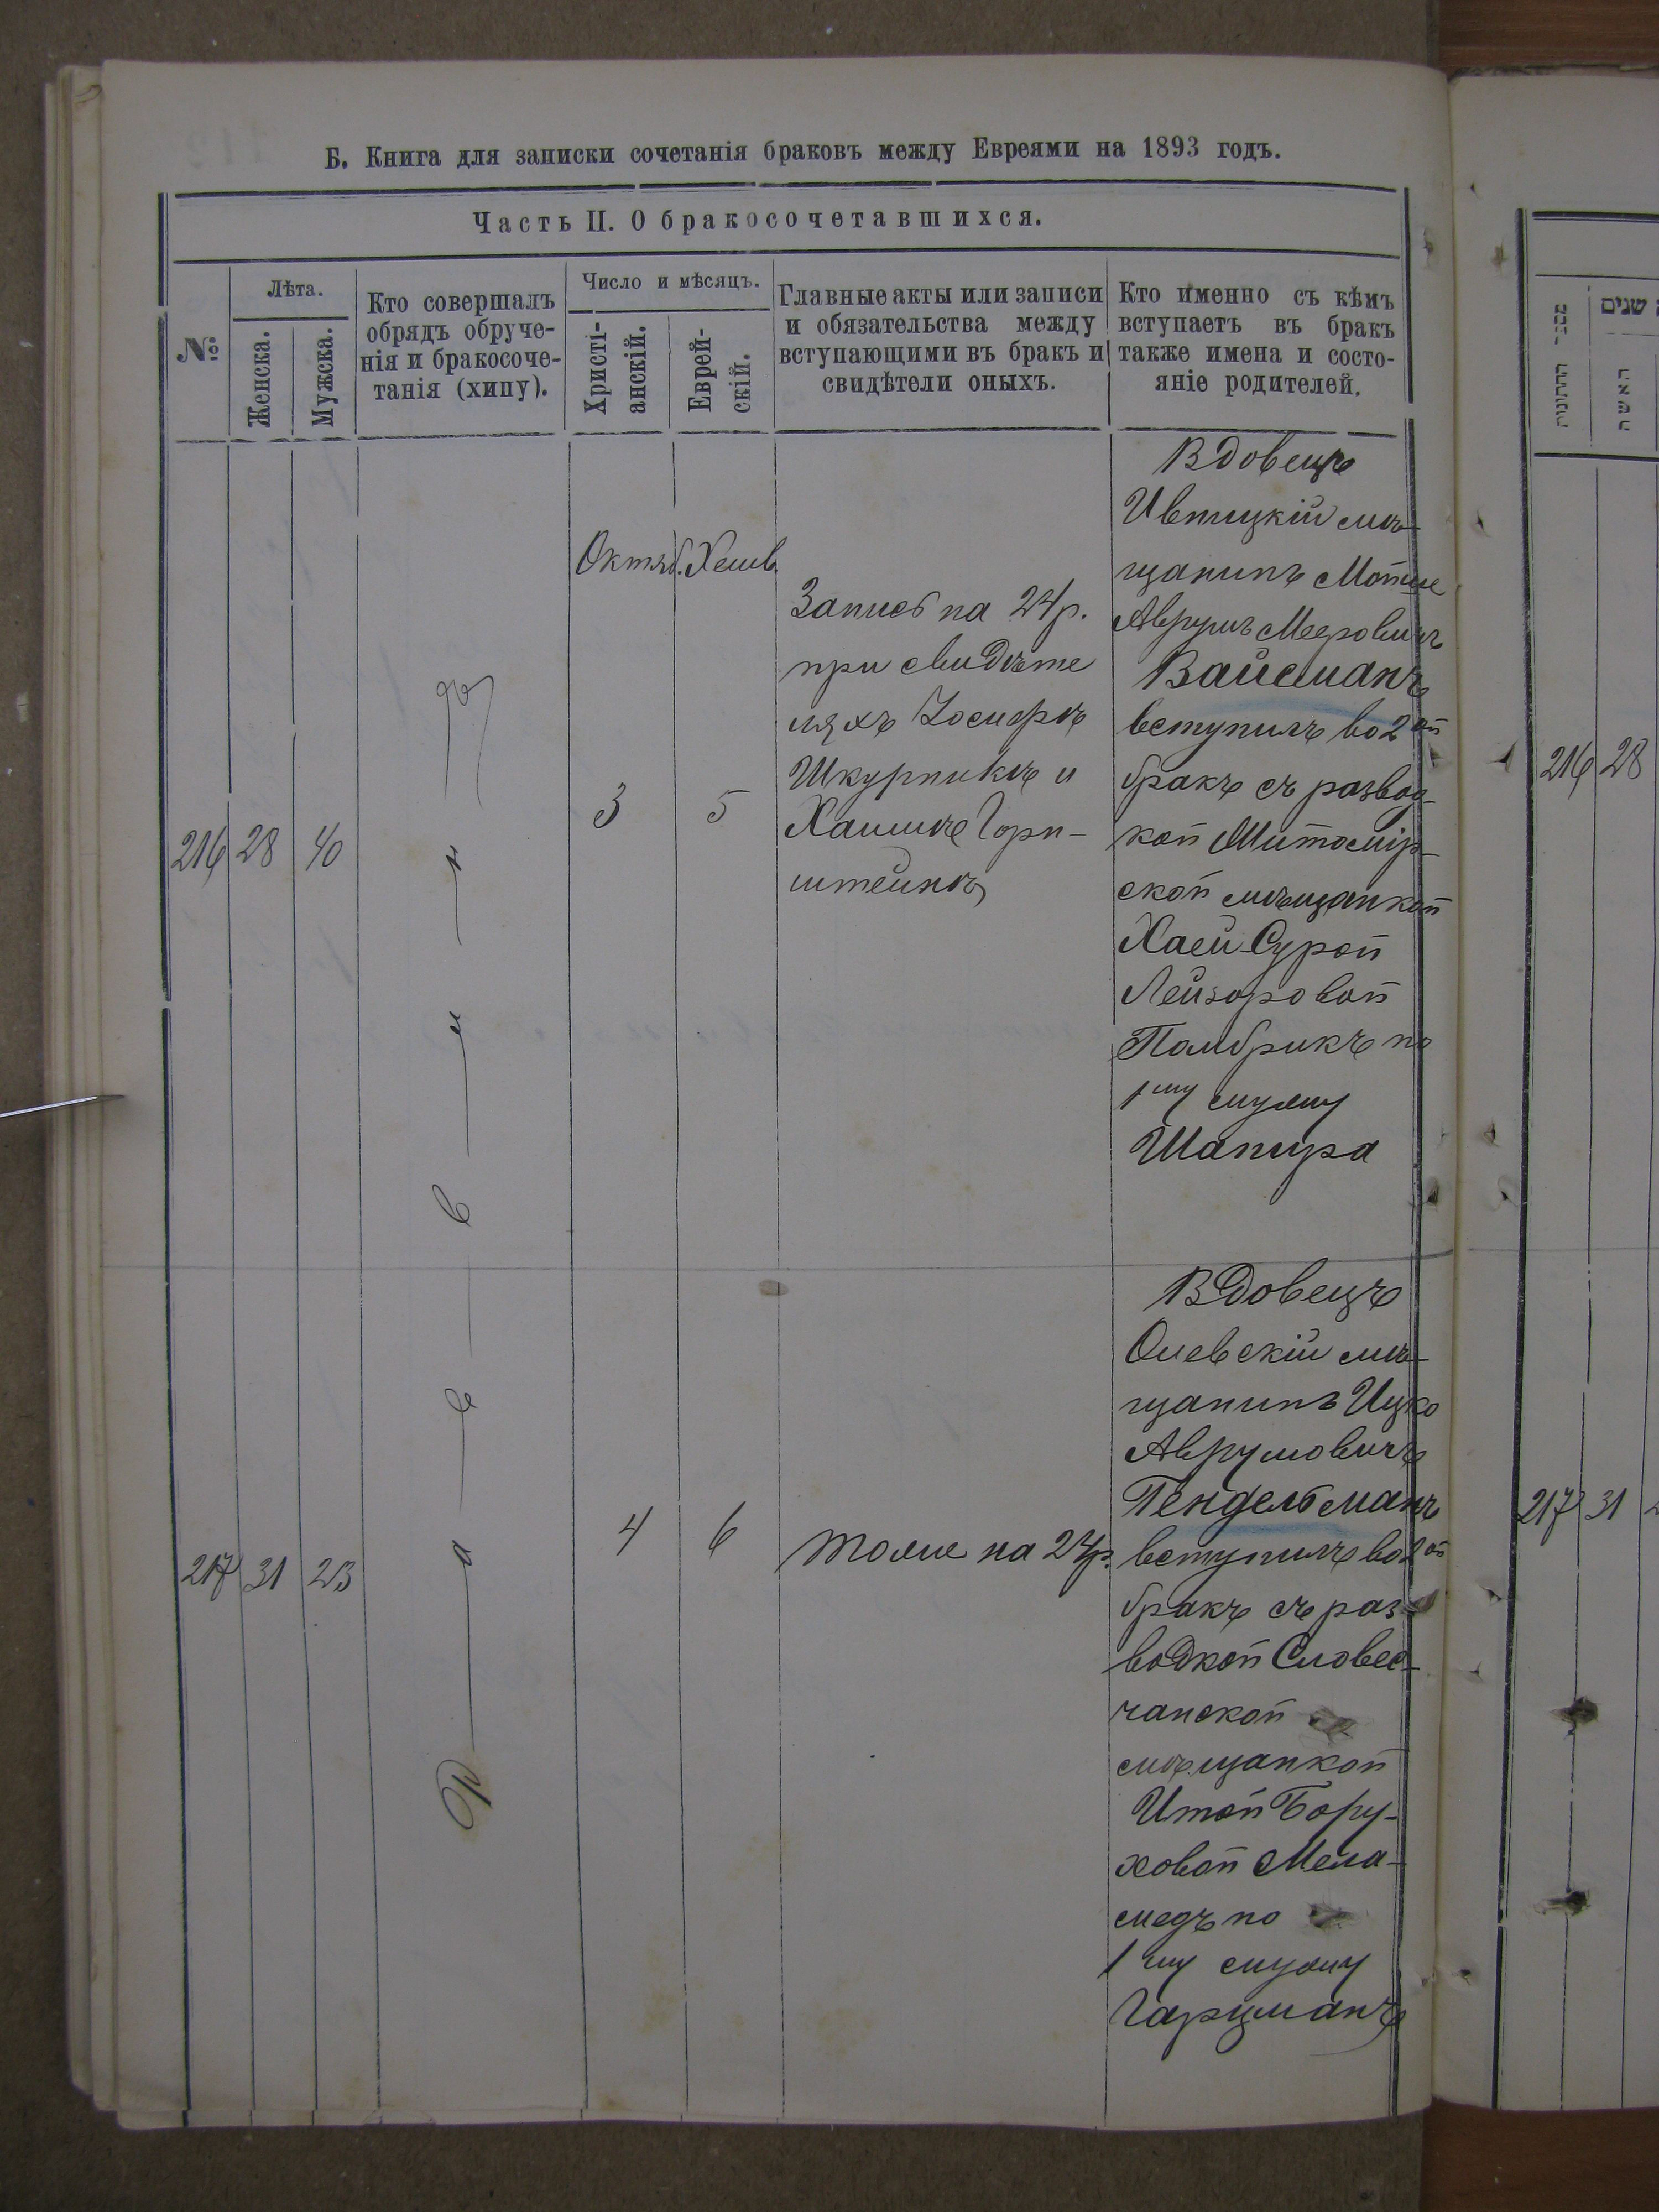 Б. Книга для записки сочетанія браковъ между Евреями на 1893 годъ.
Часть II. О бракосочетавшихся.
№
Лѣта.
Женска.
Мужска.
Кто совершалъ
обрядъ обруче-
нія и бракосоче-
танія (хипу).
Число и мѣсяцъ.
Христі-
анскій.
Еврей-
скій.
Главные акты или записи
и обязательства между
вступающими въ бракъ и
свидѣтели оныхъ.
Кто именно съ кѣмъ
вступаетъ въ бракъ
также имена и состо-
яніе родителей.
216
28
40
Р а в в и н ъ
Октяб.
3
Хешв.
5
Запись на 24 р.
при свидѣте
ляхъ Іосифѣ
Шкурникѣ и
Хаимѣ Горн-
штейнѣ
Вдовецъ
Ивницкій мѣ-
щанинъ Мотше
Аврумъ Мееровичъ
Вайсманъ
вступилъ во 2ой
бракъ съ развод-
кой Житомір-
ской мѣщанкой
Хаей-Сурой
Лейзоровой
Памбрикъ по
1му мужу
Шапира
217
31
23
4
6
тоже на 24 р.
Вдовецъ
Олевскій мѣ-
щанинъ Ицко
Аврумовичъ
Гендельманъ
вступилъ во 2ой
бракъ съ раз-
водкой Словеč-
чанской
мѣщанкой
Итой Бору-
ховой Мела-
медъ по
1му мужу
Гарцманъ
שנים
האשה
216
28
217
31